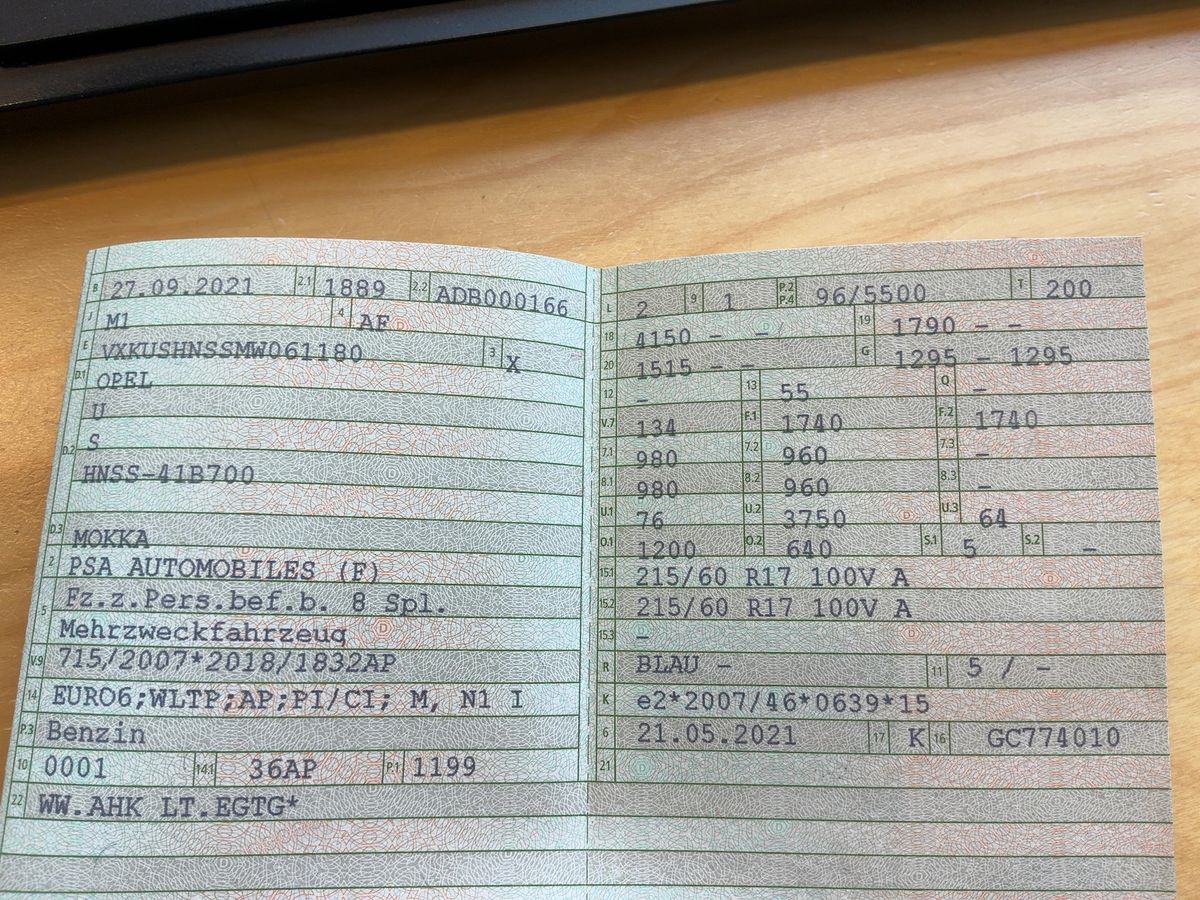 B 27.09.2021 2.1 1889 2.2 ADB000166
J M1 4 AF
E VXKUSHNSSMW061180 3 X
D.1 OPEL
U
D.2 S
HNSS-41B700
D.3 MOKKA
2 PSA AUTOMOBILES (F)
5 Fz.z.Pers.bef.b. 8 Spl.
Mehrzweckfahrzeug
V.9 715/2007*2018/1832AP
14 EURO6;WLTP;AP;PI/CI; M, N1 I
P.3 Benzin
10 0001 14.1 36AP P.1 1199
22 WW.AHK LT.EGTG*
L 2 9 1 P.2 P.4 96/5500 T 200
18 4150 - - 19 1790 - -
20 1515 - - G 1295 - 1295
12 - 13 55 Q -
V.7 134 F.1 1740 F.2 1740
7.1 980 7.2 960 7.3 -
8.1 980 8.2 960 8.3 -
U.1 76 U.2 3750 U.3 64
O.1 1200 O.2 640 S.1 5 S.2 -
15.1 215/60 R17 100V A
15.2 215/60 R17 100V A
15.3 -
R BLAU - 11 5 / -
K e2*2007/46*0639*15
6 21.05.2021 17 K 16 GC774010
21